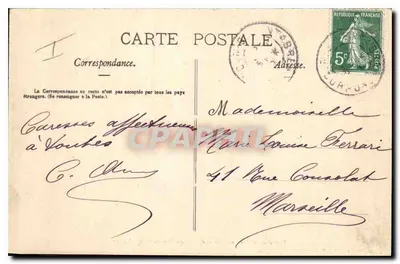 CARTE POSTALE
Correspondance.
Adresse.
La Correspondance au recto n'est pas acceptée par tous les pays
étrangers. (Se renseigner à la Poste.)
REPUBLIQUE FRANÇAISE
5c
POSTES
I
Caresses affectueuses
à toutes
C.
CPARTPHIL
Mademoiselle
Marie Louise Ferrari
41 Rue Consolat
Marseille